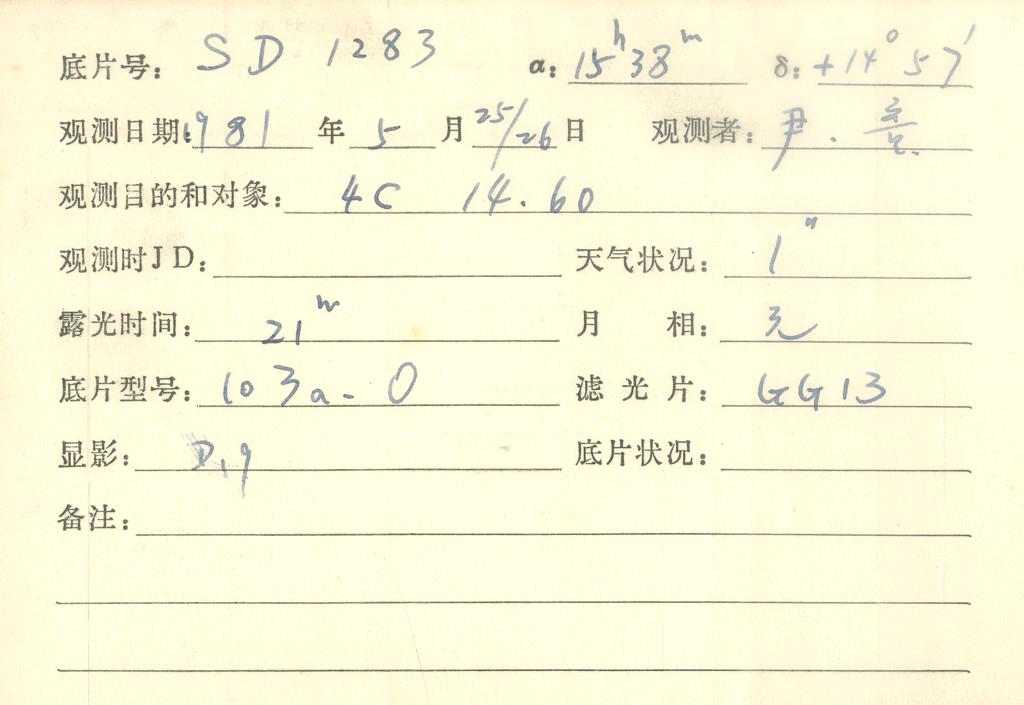 底片号: SD 1283 α: 15ʰ38ᵐ δ: +14°57′
观测日期: 1981 年 5 月 25/26 日 观测者: 尹.
观测目的和对象: 4C 14.60
观测时JD: 天气状况: 1"
露光时间: 21ᵐ 月 相: 无
底片型号: 103a-O 滤光片: GG13
显影: D19 底片状况:
备注: